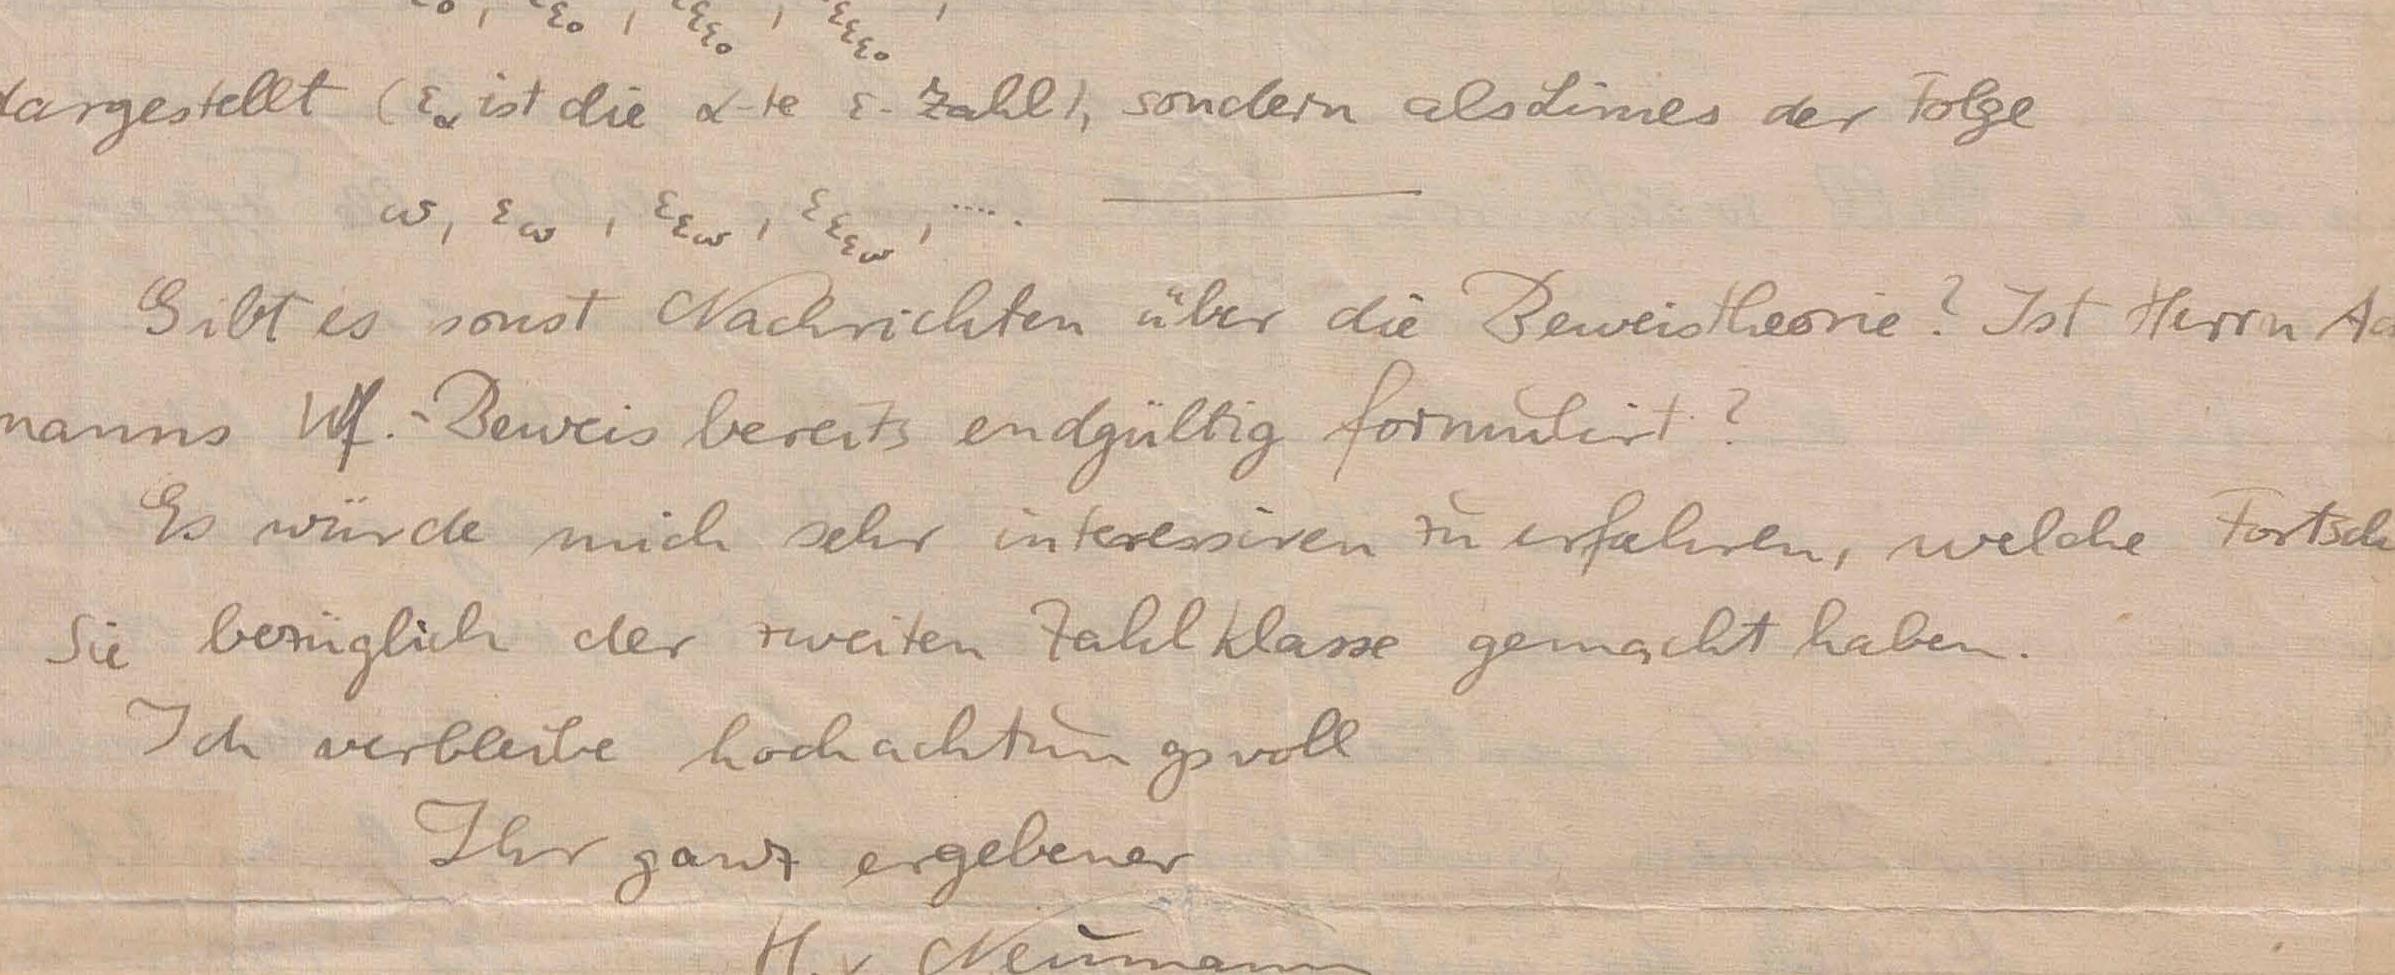 ε₀, ε_ε₀, ε_ε_ε₀, ε_ε_ε_ε₀,
dargestellt (ε_α ist die α-te ε-Zahl), sondern als Limes der Folge
ω, ε_ω, ε_ε_ω, ε_ε_ε_ω, .... .
Gibt es sonst Nachrichten über die Beweistheorie? Ist Herrn
manns Wf.-Beweis bereits endgültig formulirt?
Es würde mich sehr interessiren zu erfahren, welche Fortsch
Sie bezüglich der zweiten Zahlklasse gemacht haben.
Ich verbleibe hochachtungsvoll
Ihr ganz ergebener
v Neumann